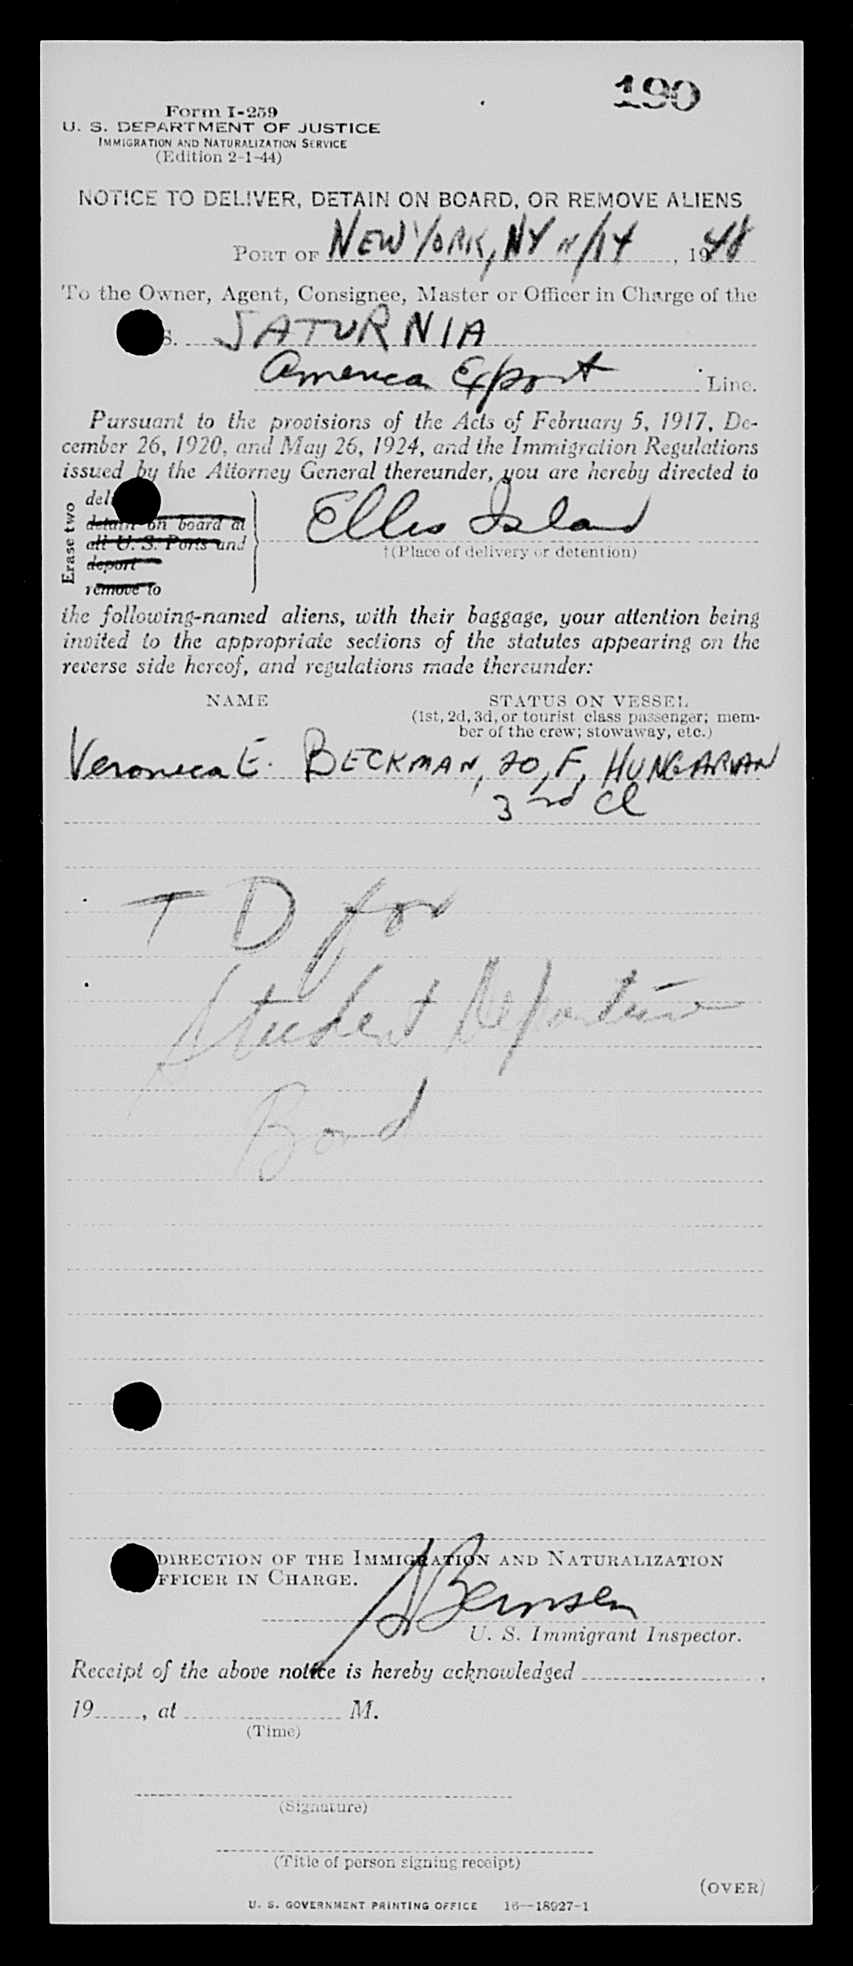 190
Form I-259
U. S. DEPARTMENT OF JUSTICE
IMMIGRATION AND NATURALIZATION SERVICE
(Edition 2-1-44)
NOTICE TO DELIVER, DETAIN ON BOARD, OR REMOVE ALIENS
PORT OF NEW YORK, NY 11/14, 1948
To the Owner, Agent, Consignee, Master or Officer in Charge of the
S. SATURNIA
America Export Line.
Pursuant to the provisions of the Acts of February 5, 1917, De-
cember 26, 1920, and May 26, 1924, and the Immigration Regulations
issued by the Attorney General thereunder, you are hereby directed to
Erase two
del
detain on board at
all U. S. Ports and
deport
remove to
Ellis Island
†(Place of delivery or detention)
the following-named aliens, with their baggage, your attention being
invited to the appropriate sections of the statutes appearing on the
reverse side hereof, and regulations made thereunder:
NAME STATUS ON VESSEL
(1st, 2d, 3d, or tourist class passenger; mem-
ber of the crew; stowaway, etc.)
Veronica E. BECKMAN, 20, F, HUNGARIAN
3rd Cl
T D for
Student Departure
Bond
DIRECTION OF THE IMMIGRATION AND NATURALIZATION
FFICER IN CHARGE.
Bernsen
U. S. Immigrant Inspector.
Receipt of the above notice is hereby acknowledged
19, at M.
(Time)
(Signature)
(Title of person signing receipt)
(OVER)
U. S. GOVERNMENT PRINTING OFFICE 16—18927-1